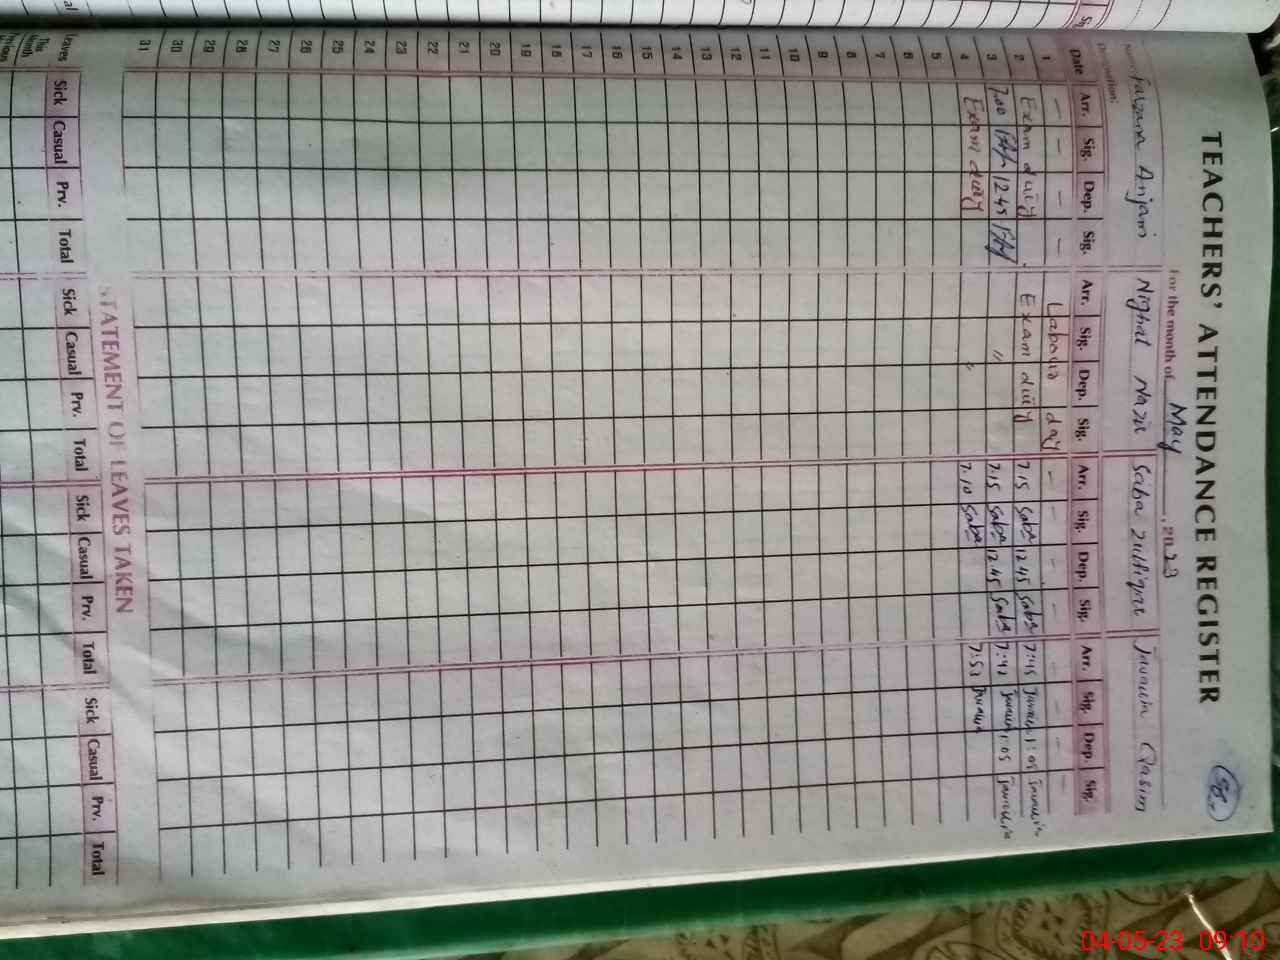 TEACHERS' ATTENDANCE REGISTER
For the month of May, 2023
Name: Farzana Anjam Nighat Nazir Saba Zulfiqar Javairia Qasim
Designation:
Date Arr. Sig. Dep. Sig. Arr. Sig. Dep. Sig. Arr. Sig. Dep. Sig. Arr. Sig. Dep. Sig.
1 — — — — Labour day — — — — — — — —
2 Exam duty Exam duty 7.15 Saba 12.45 Saba 7:45 Javairia 1:05 Javairia
3 7.00 12.45 " 7.15 Saba 12.45 Saba 7:42 Javairia 1:05 Javairia
4 Exam duty " 7.10 Saba 7:53 Javairia
5
6
7
8
9
10
11
12
13
14
15
16
17
18
19
20
21
22
23
24
25
26
27
28
29
30
31
STATEMENT OF LEAVES TAKEN
Leaves Sick Casual Prv. Total Sick Casual Prv. Total Sick Casual Prv. Total Sick Casual Prv. Total
This Month
04-05-23 09:10